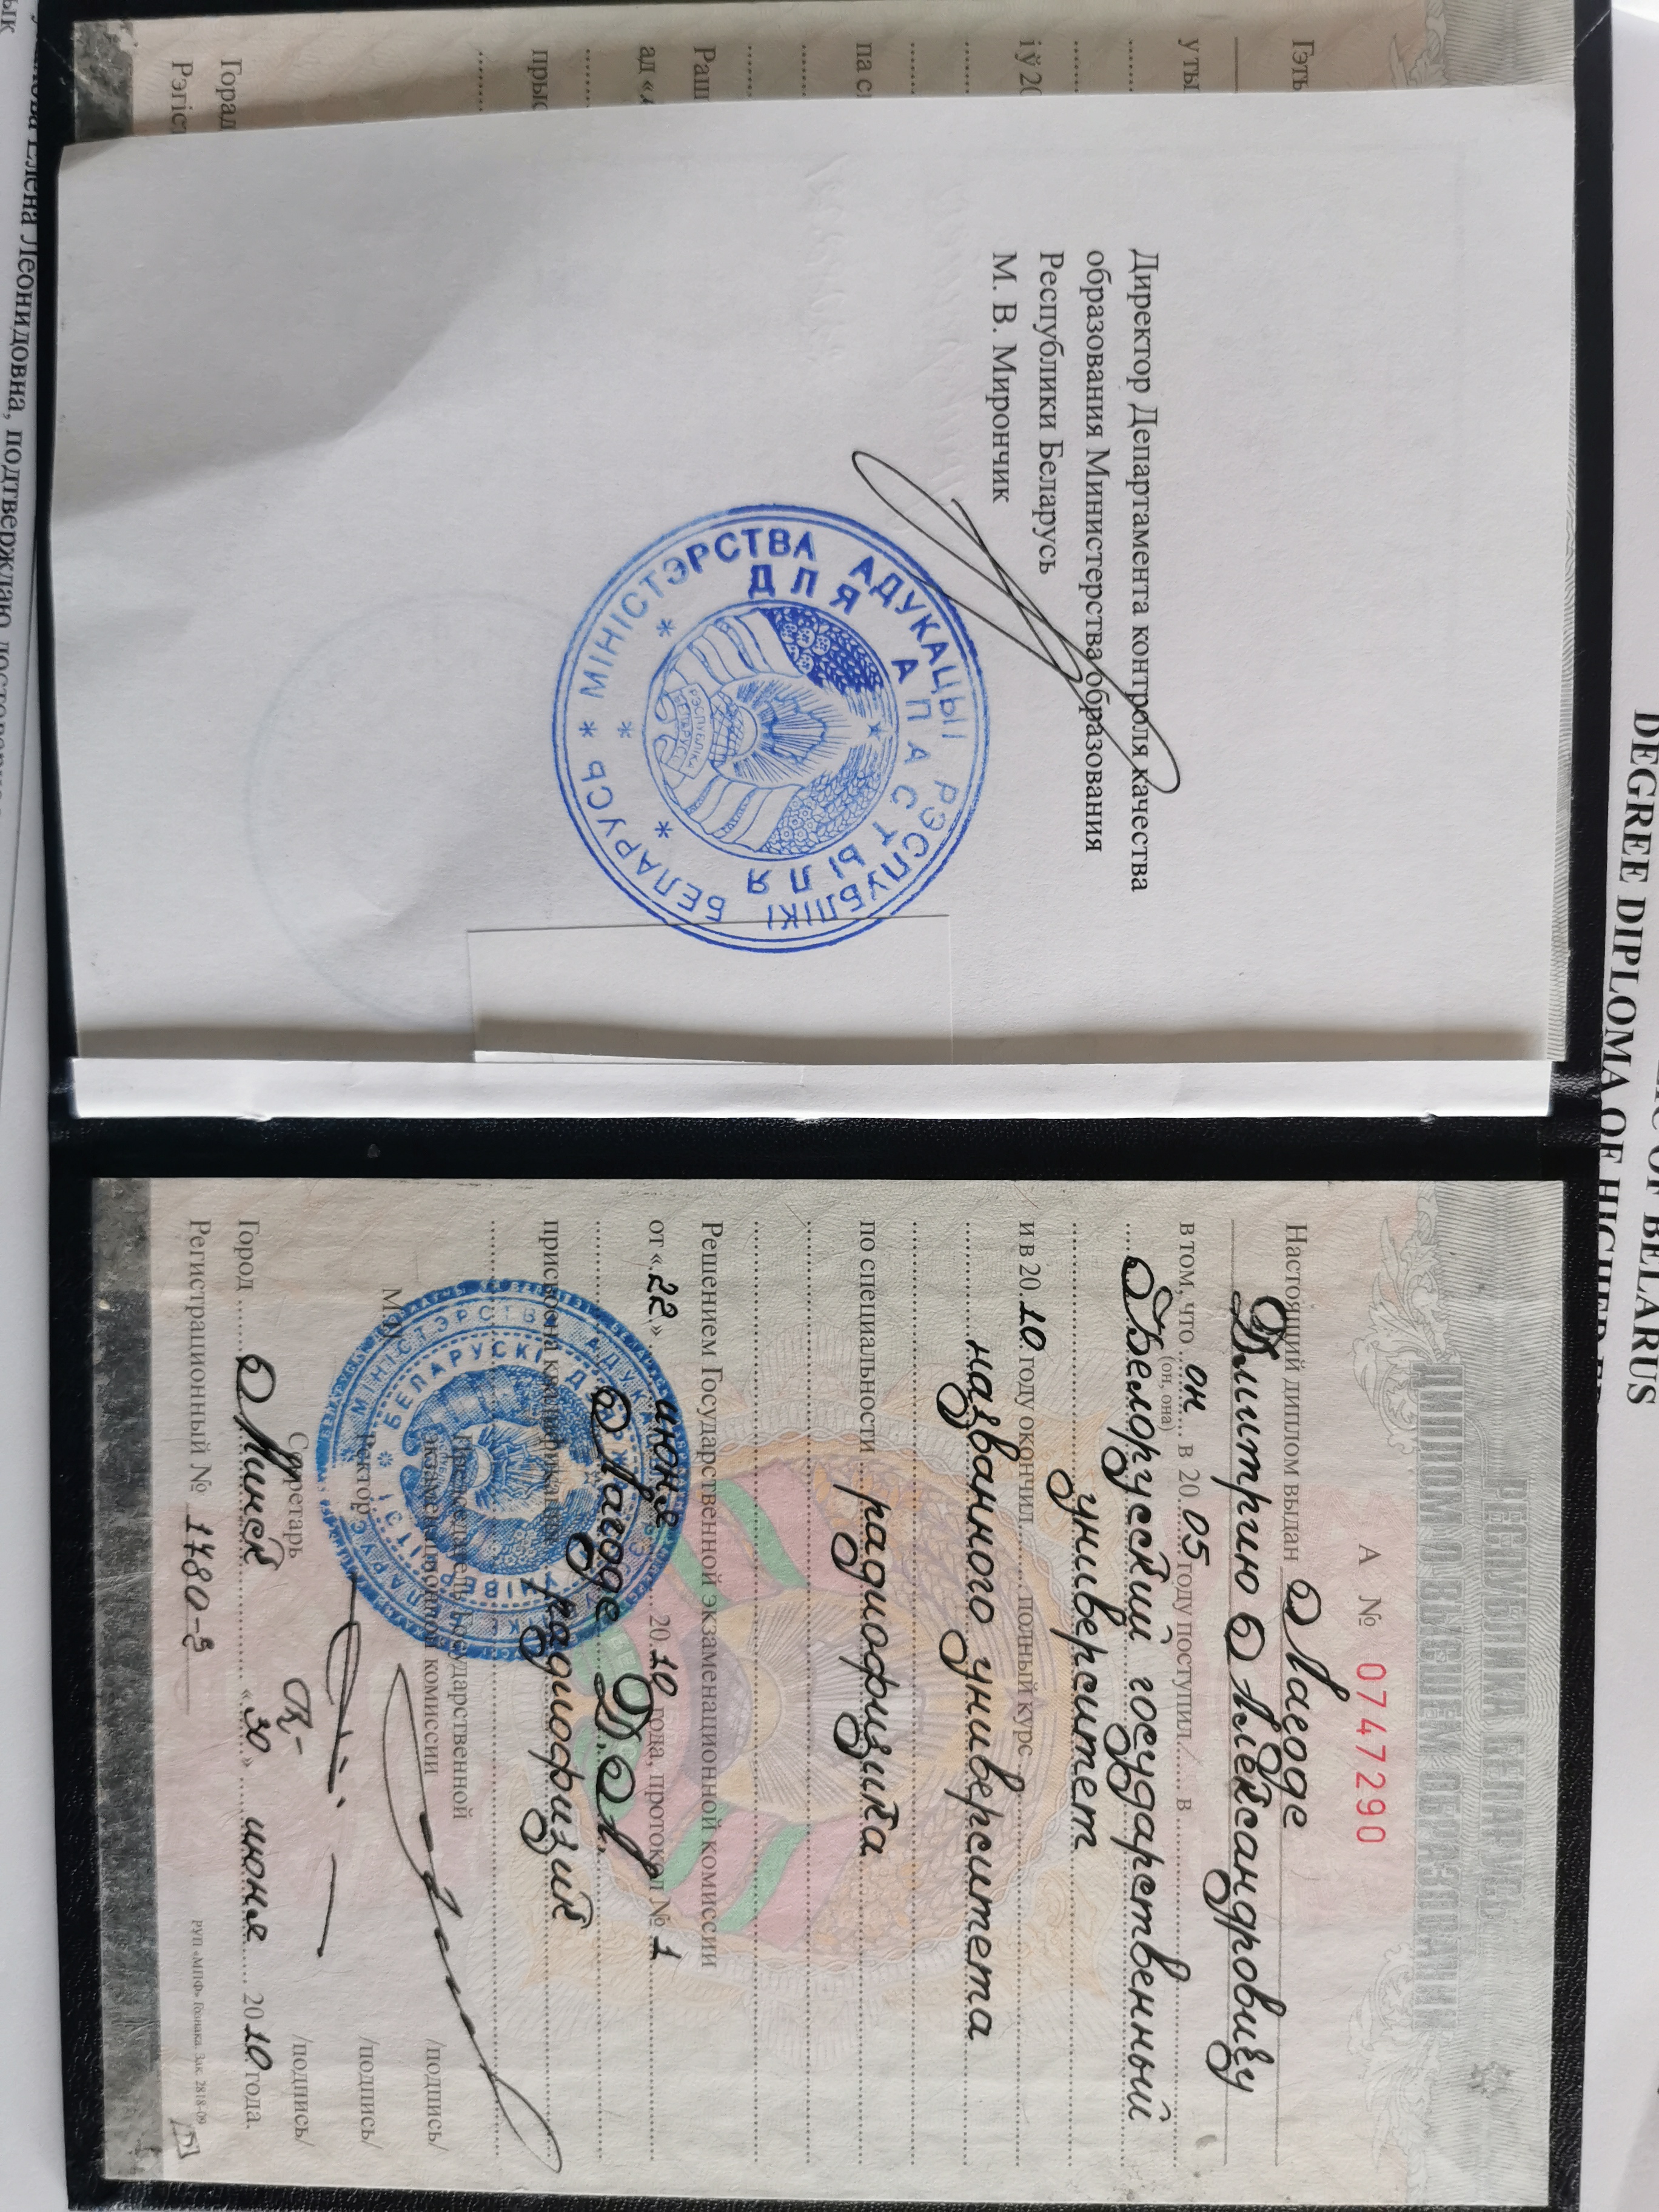 OF BELARUS
DEGREE DIPLOMA OF HIGHER
Гэты
у ты
і ў 20
па с
Раш
ад «
прыс
Горад
Рэгіст
Директор Департамента контроля качества
образования Министерства образования
Республики Беларусь
М. В. Мирончик
МІНІСТЭРСТВА АДУКАЦЫІ РЭСПУБЛІКІ БЕЛАРУСЬ
ДЛЯ АПАСТЫЛЯ
РЭСПУБЛІКА
БЕЛАРУСЬ
РЕСПУБЛИКА БЕЛАРУСЬ
ДИПЛОМ О ВЫСШЕМ ОБРАЗОВАНИИ
А № 0747290
Настоящий диплом выдан Лагоде
Дмитрию Александровичу
в том, что он в 2005 году поступил в
(он, она)
Белорусский государственный
университет
и в 2010 году окончил полный курс
названного университета
по специальности радиофизика
Решением Государственной экзаменационной комиссии
от «22» июня 2010 года, протокол № 1
Лагоде Д. А.
присвоена квалификация радиофизик
Председатель Государственной
экзаменационной комиссии /подпись/
М.П.
Ректор /подпись/
Секретарь /подпись/
Город Минск «30» июня 2010 года.
Регистрационный № 1780-з
РУП «МПФ» Гознака. Зак. 2818-09
Елена Леонидовна, подтверждаю